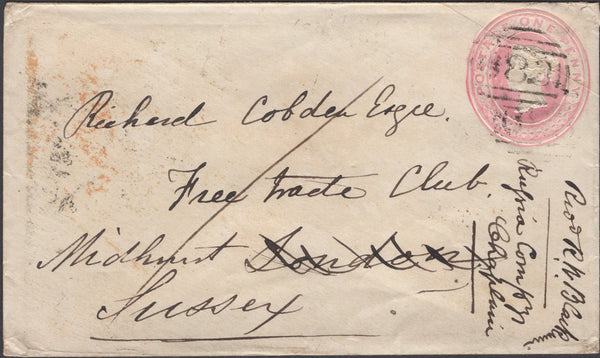 POSTAGE ONE PENNY
Richard Cobden Esqre.
Free trade Club.
Midhurst London
Sussex
Revd R. W. Black
Russia Compy
Chaplain